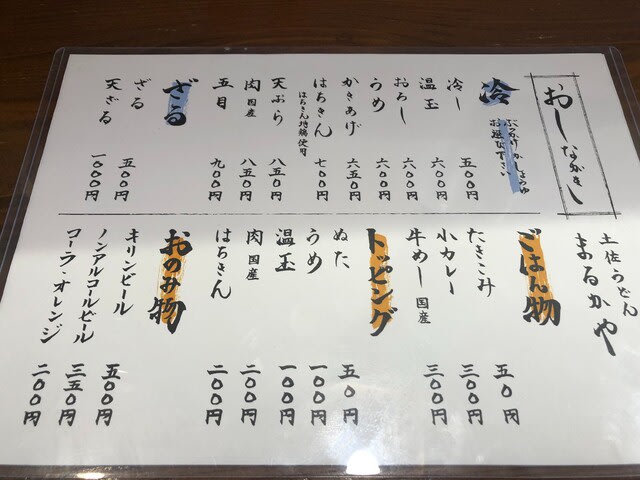 おしながき
冷
ぶっかけかしょうゆ
お選び下さい
冷し 五〇〇円
温玉 六〇〇円
おろし 六〇〇円
うめ 六五〇円
かきあげ 六五〇円
はちきん 七〇〇円
はちきん地鶏使用
天ぷら 八五〇円
肉 国産 八五〇円
五目 九〇〇円
ざる
ざる 五〇〇円
天ざる 一〇〇〇円
土佐うどん
まるかや
ごはん物
たきこみ 五〇円
小カレー 三〇〇円
牛めし 国産 三〇〇円
トッピング
ぬた 五〇円
うめ 一〇〇円
温玉 一〇〇円
肉 国産 二〇〇円
はちきん 二〇〇円
おのみ物
キリンビール 五〇〇円
ノンアルコールビール 三五〇円
コーラ・オレンジ 二〇〇円